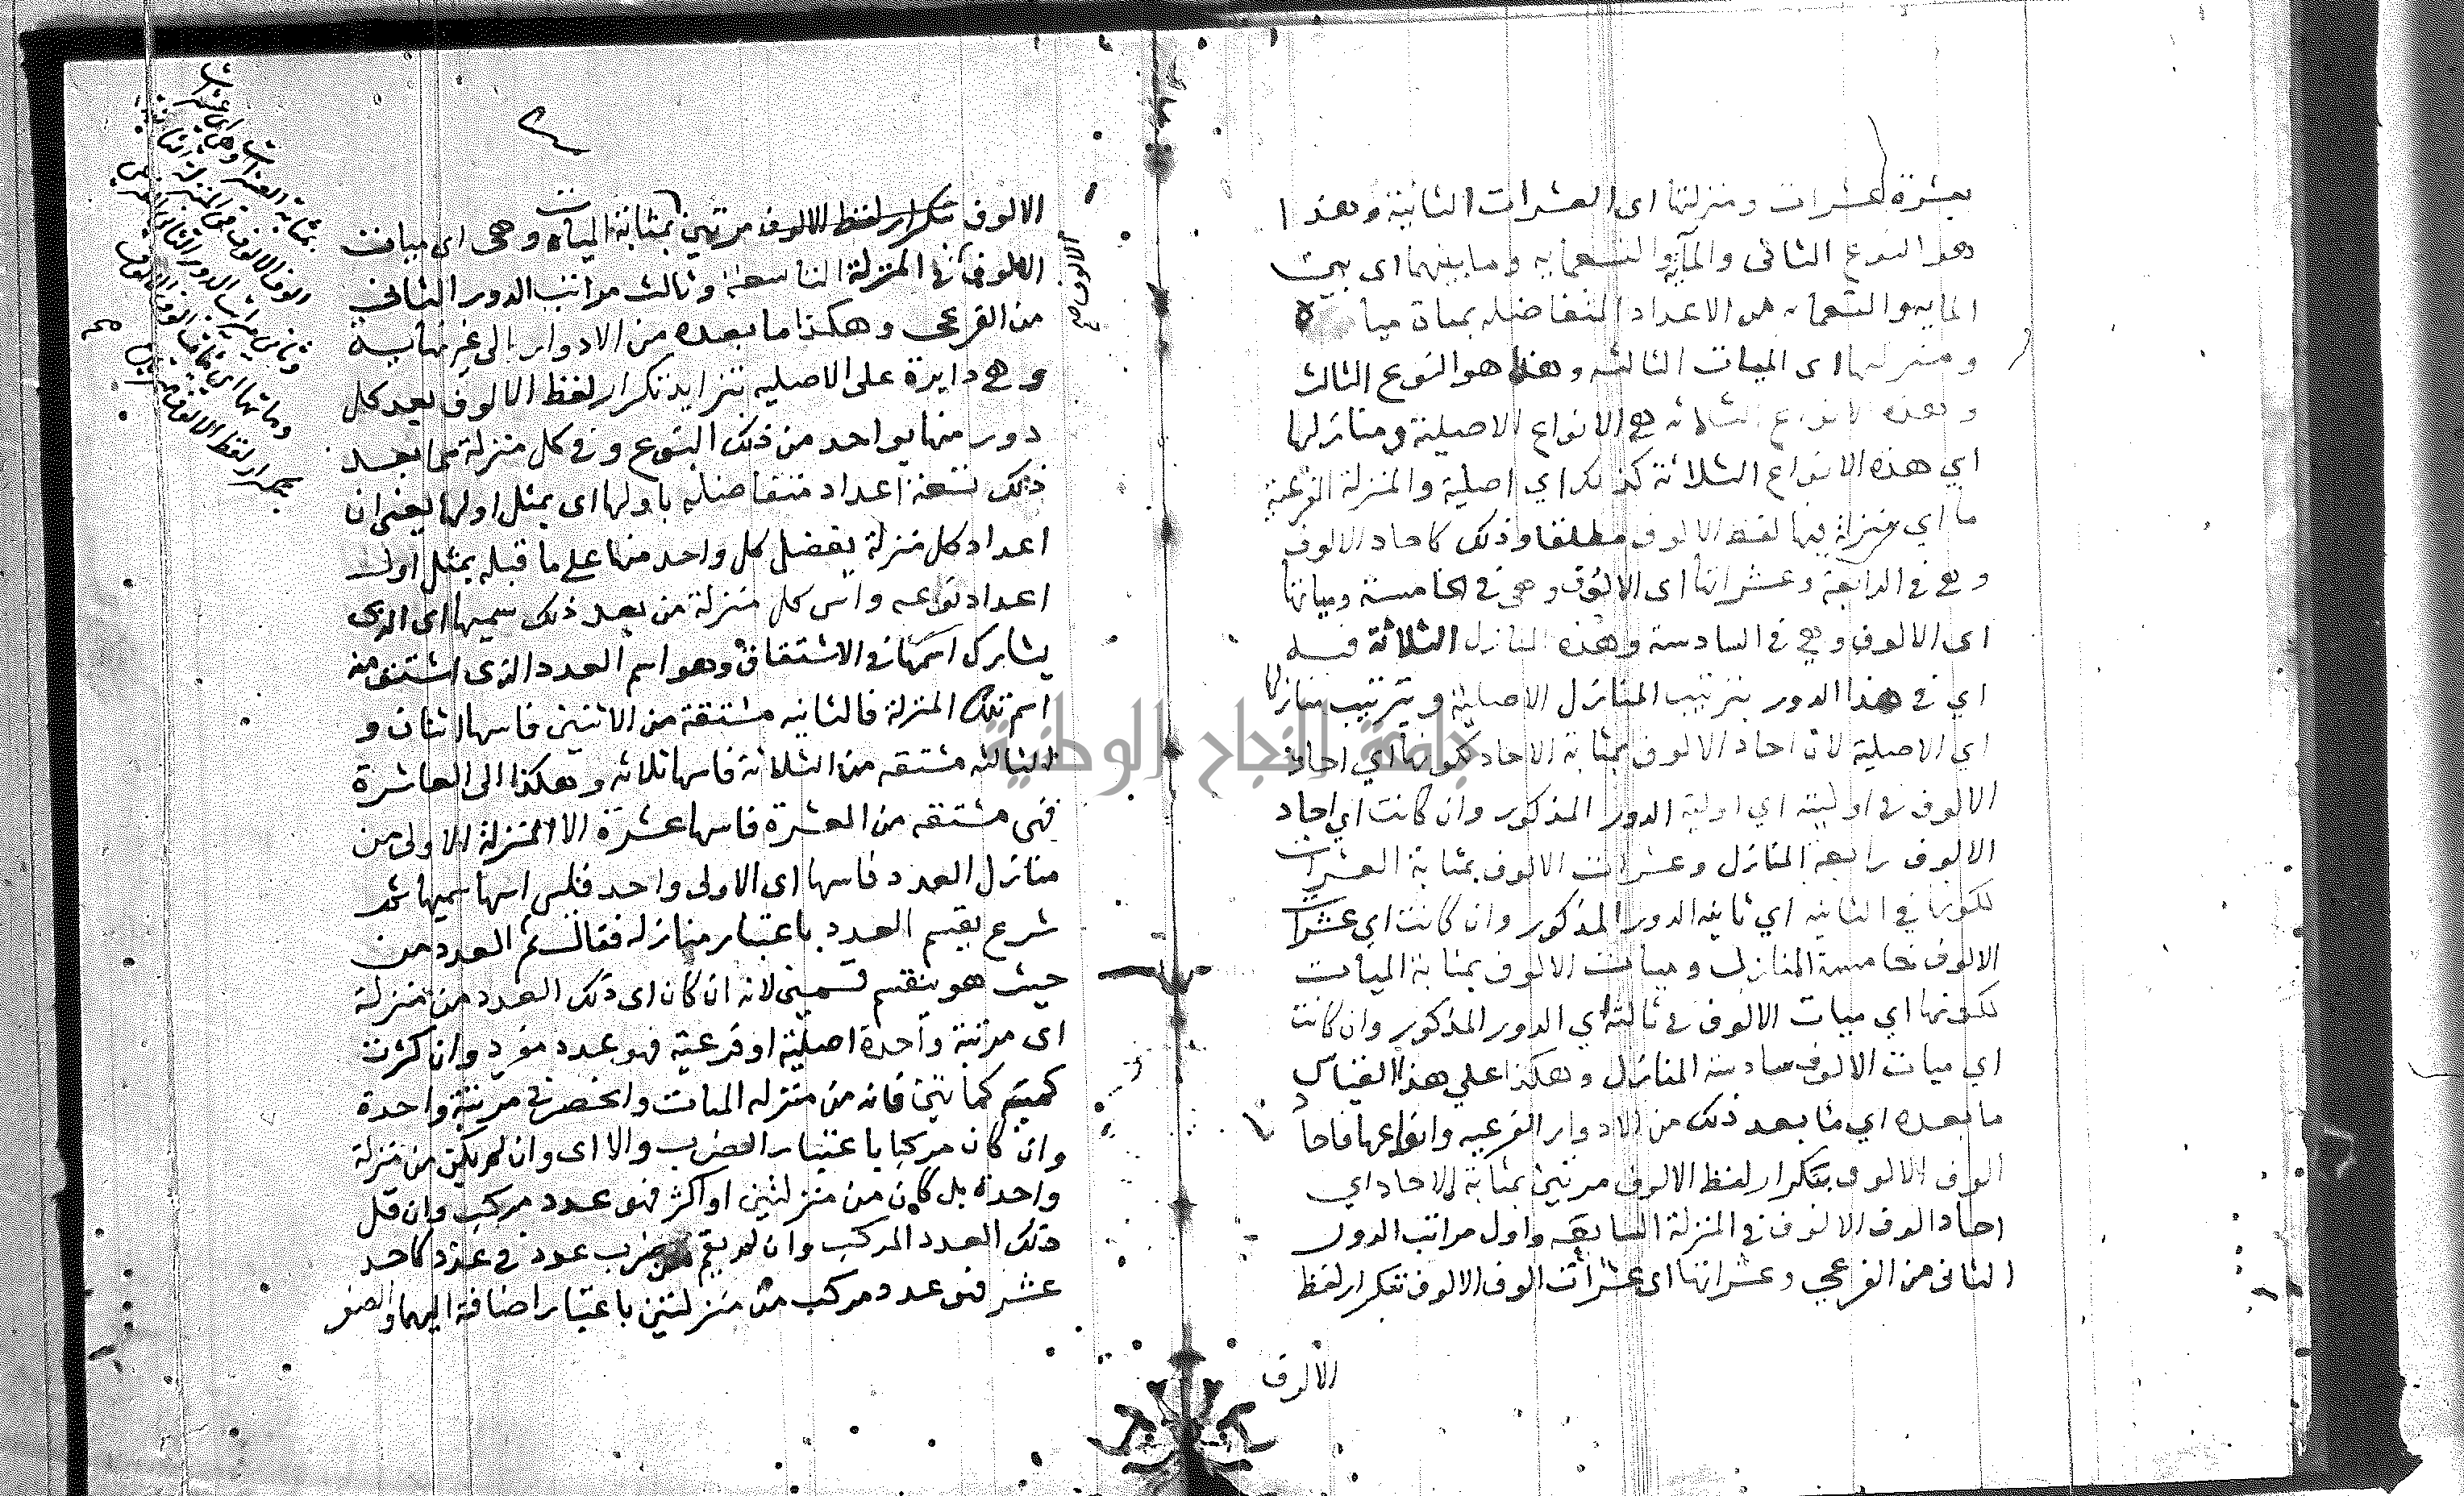 بعشرة عشرات ومنزلتها اى العشرات الثانية وهذا
هو النوع الثانى والمأية والتسعماية وما بينهما اى بين
المايه والتسعمايه من الاعداد المتفاضله بماة مياة
ومنزلتها اى الميات الثالثه وهذا هو النوع الثالث
وهذه الانواع الثلاثه هي الانواع الاصلية ومنازلها
اي هذه الانواع الثلاثة كذلك اي اصلية والمنزلة الفرعية
ما اي منزلة فيها لفظ الالوف مطلقا وذلك كاحاد الالوف
وهي في الرابعة وعشراتها اى الالوف وهى في الخامسة ومياتها
اى الالوف وهي في السادسة وهذه المنازل الثلاثة فيه
اي في هذا الدور بترتيب المنازل الاصلية وبترتيب منازلها
اي الاصلية لان احاد الالوف بمثابة الاحاد لكونها اي احاد
الالوف في اوليته اي اولية الدور المذكور وان كانت اي احاد
الالوف رابعة المنازل وعشرات الالوف بمثابة العشرات
لكونها في الثانيه اي ثانية الدور المذكور وان كانت اي عشرات
الالوف خامسة المنازل وميات الالوف بمثابة الميات
لكونها اي ميات الالوف في ثالثة اي الدور المذكور وان كانت
اي ميات الالوف سادسة المنازل وهكذا علي هذا القياس
ما بعده اي ما بعد ذلك من الادوار الفرعيه وانواعها فاحاد
الوف الالوف بتكرار لفظ الالوف مرتين بمثابة الاحاد اي
احاد الوف الالوف في المنزلة السابعه واول مراتب الدور
الثانى من الفرعي وعشراتها اى عشرات الوف الالوف بتكرار لفظ
الالوف
الالوف تكرار لفظ الالوف مرتين بمثابة الميات وهى اى ميات
الالوف في المنزلة التاسعة وثالث مراتب الدور الثانى
من الفرعى وهكذا ما بعده من الادوار الى غير نهاية
وهي دايرة على الاصليه بتزايد تكرار لفظ الالوف بعد كل
دور منها بواحد من ذلك النوع وفي كل منزلة مما بعد
ذلك تسعة اعداد متفاضله باولها اى بمثل اولها يعنى ان
اعداد كل منزلة يفضل كل واحد منها على ما قبله بمثل اول
اعداد نوعه واس كل منزلة من بعد ذلك سميها اى الذى
يشارك اسمها في الاشتقاق وهو اسم العدد الذى اشتق منه
اسم تلك المنزلة فالثانيه مشتقة من الاثنين فاسها اثنان و
الثالثه مشتقه من الثلاثة فاسها ثلاثه وهكذا الى العاشرة
فهى مشتقه من العشرة فاسها عشرة الا المنزلة الاولى من
منازل العدد فاسها اى الاولى واحد فليس اسها سميها ثم
شرع يقسم العدد باعتبار منازله فقال ثم العدد من
حيث هو ينقسم قسمين لانه ان كان اى ذلك العدد من منزلة
اى مرتبة واحدة اصلية او فرعية فهو عدد مفرد وان كثرت
كميته كمايتين فانه من منزله الميات وانحصر في مرتبة واحدة
وان كان مركبا باعتبار الضرب والا اى وان لم يكن من منزلة
واحدة بل كان من منزلتين او اكثر فهو عدد مركب وان قل
ذلك العدد المركب وان لم يقم من ضرب عدد في عدد كاحد
عشر فهو عدد مركب من منزلتين باعتبار اضافة اليهما والصفر
الالوف صح
بمثابة العشرات وهى اى عشرات
الوف الالوف فى المنزلة الثامنة
وثانى مراتب الدور الثانى من الفرعى
ومياتها اى ميات الوف الالوف
بتكرار لفظ الالوف مرتين صح
جامعة النجاح الوطنية